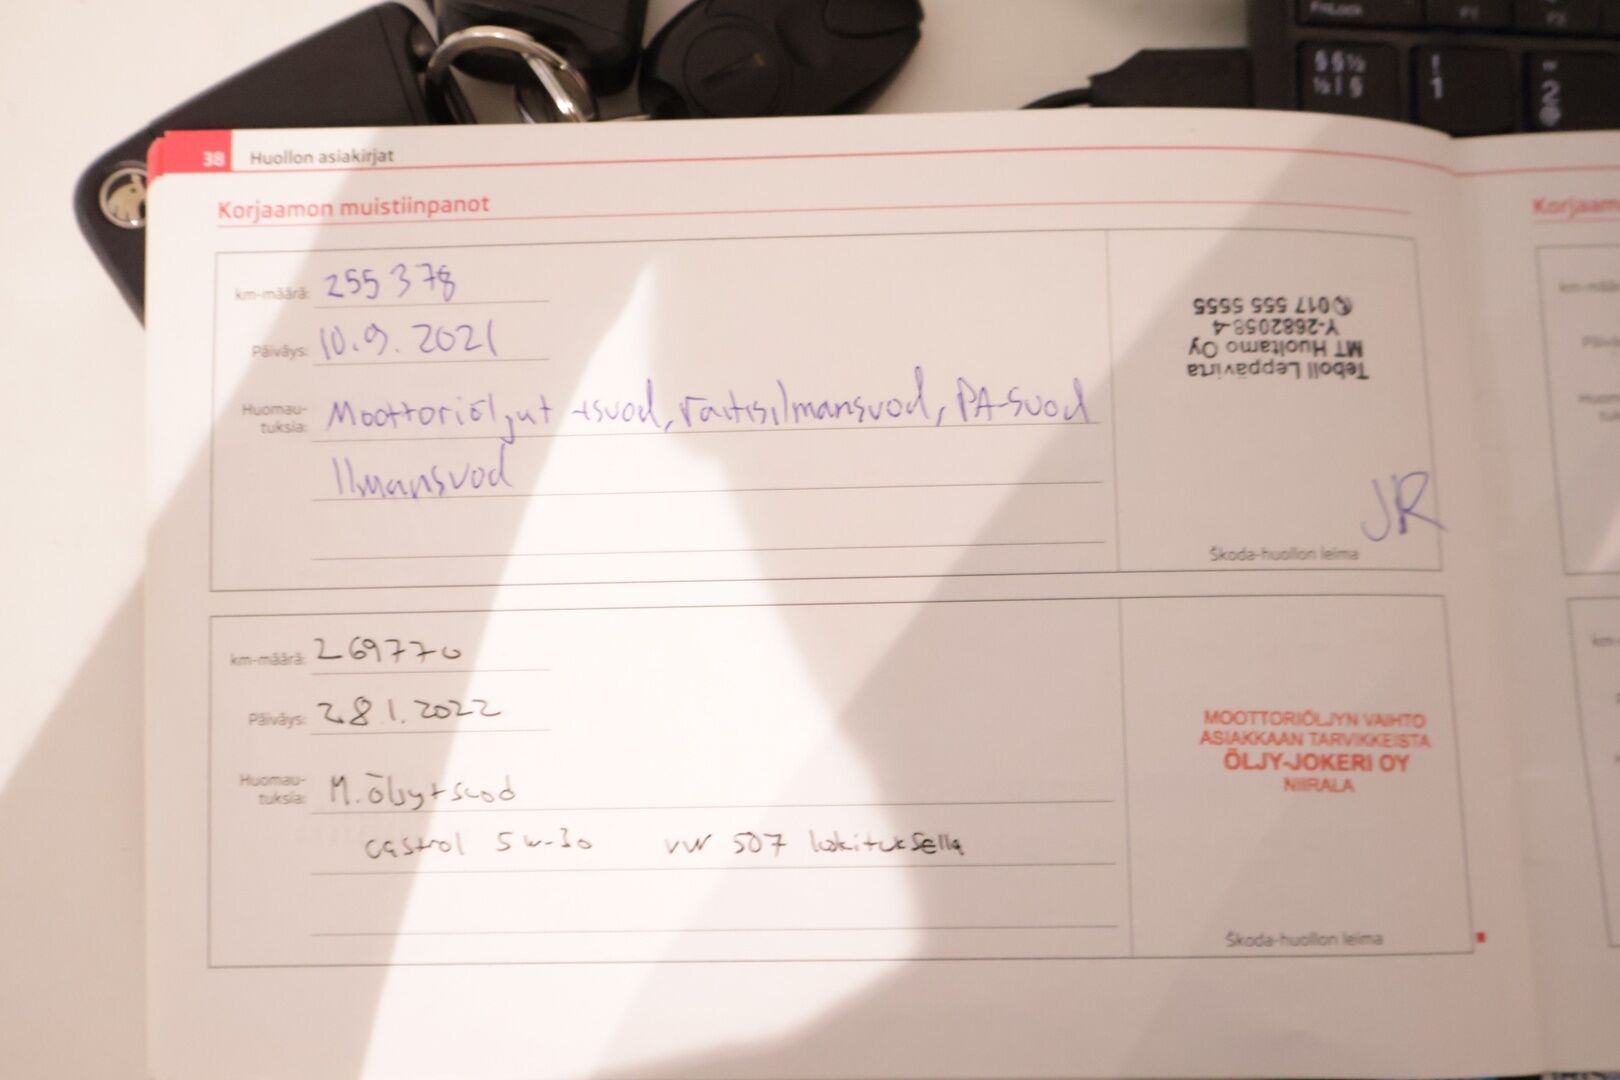 FnLock
F1
F2
§ § ½
½ | §
!
1
"
2
@
38 Huollon asiakirjat
Korjaamon muistiinpanot
km-määrä: 255 378
Päiväys: 10.9. 2021
Huomau-
tuksia: Moottoriöljyt +suod, raitisilmansuod, PA-suod
Ilmansuod
Teboil Leppävirta
MT Huoltamo Oy
Y-2682058-4
✆017 555 5655
JR
Škoda-huollon leima
km-määrä: 269770
Päiväys: 28.1.2022
Huomau-
tuksia: M.öljyt+suod
castrol 5w-30 vw 507 luokituksella
MOOTTORIÖLJYN VAIHTO
ASIAKKAAN TARVIKKEISTA
ÖLJY-JOKERI OY
NIIRALA
Škoda-huollon leima
Korjaam